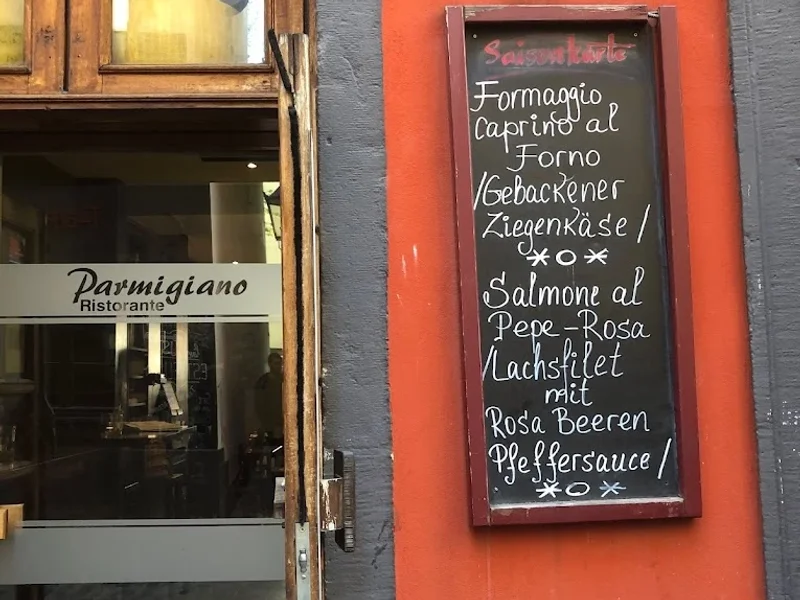 Parmigiano
Ristorante
Saisonkarte
Formaggio
Caprino al
Forno
/Gebackener
Ziegenkäse/
*O*
Salmone al
Pepe-Rosa
/Lachsfilet
mit
Rosa Beeren
Pfeffersauce/
*O*